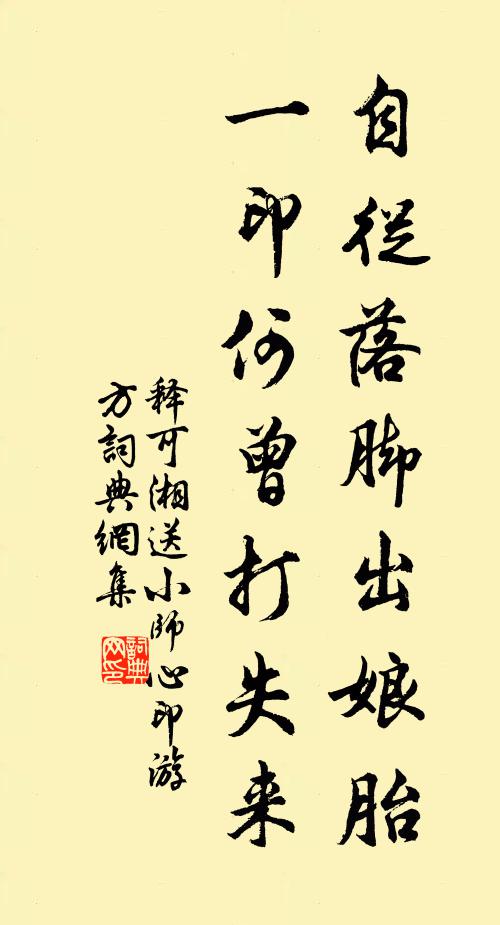 自從落脚出娘胎
一印何曾打失来
释可湘送小师心印游
方詞典網集
詞典网印